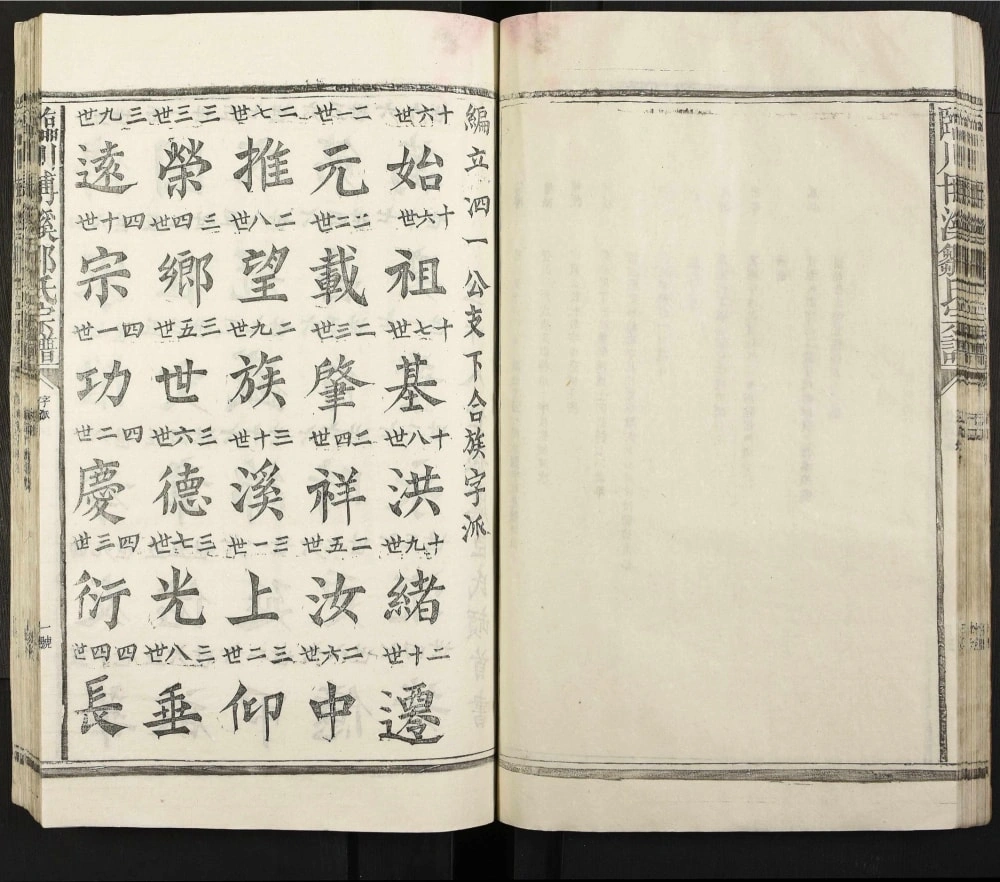 編立泗一公支下合族字派
十六世 始 十六世 祖 十七世 基 十八世 洪 十九世 緒 二十世 遷
二一世 元 二二世 載 二三世 肇 二四世 祥 二五世 汝 二六世 中
二七世 推 二八世 望 二九世 族 三十世 溪 三一世 上 三二世 仰
三三世 榮 三四世 鄉 三五世 世 三六世 德 三七世 光 三八世 垂
三九世 遠 四十世 宗 四一世 功 四二世 慶 四三世 衍 四四世 長
臨川 溪 氏宗譜 字派 一號